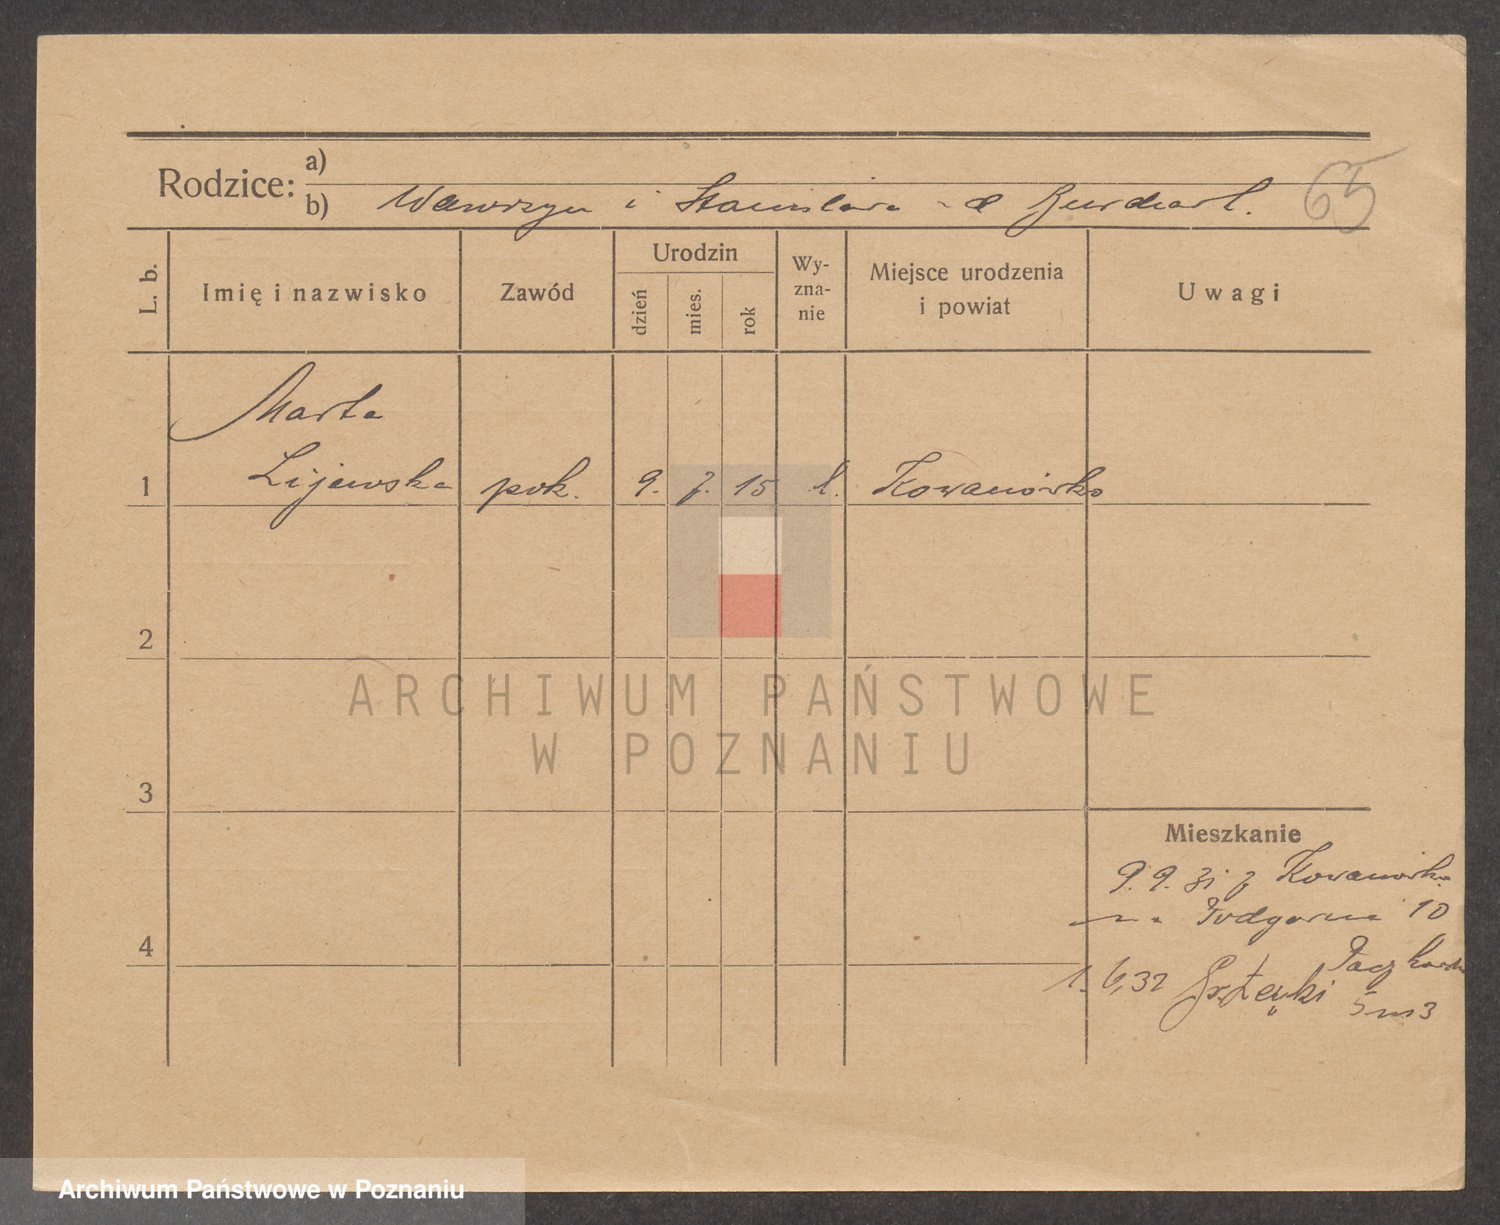 Rodzice: a)
b) Wawrzyn i Stanisława z d Burchart. 65
L. b.
Imię i nazwisko
Zawód
Urodzin
dzień
mies.
rok
Wy-
zna-
nie
Miejsce urodzenia
i powiat
Uwagi
Marta
1 Lijewska pok. 9. 7. 15 k. Kowanówko
2
ARCHIWUM PAŃSTWOWE
W POZNANIU
3
Mieszkanie
9. 9. 31 z Kowanówka
na Podgórna 10
4
1. 6, 32
5 m 3
Archiwum Państwowe w Poznaniu